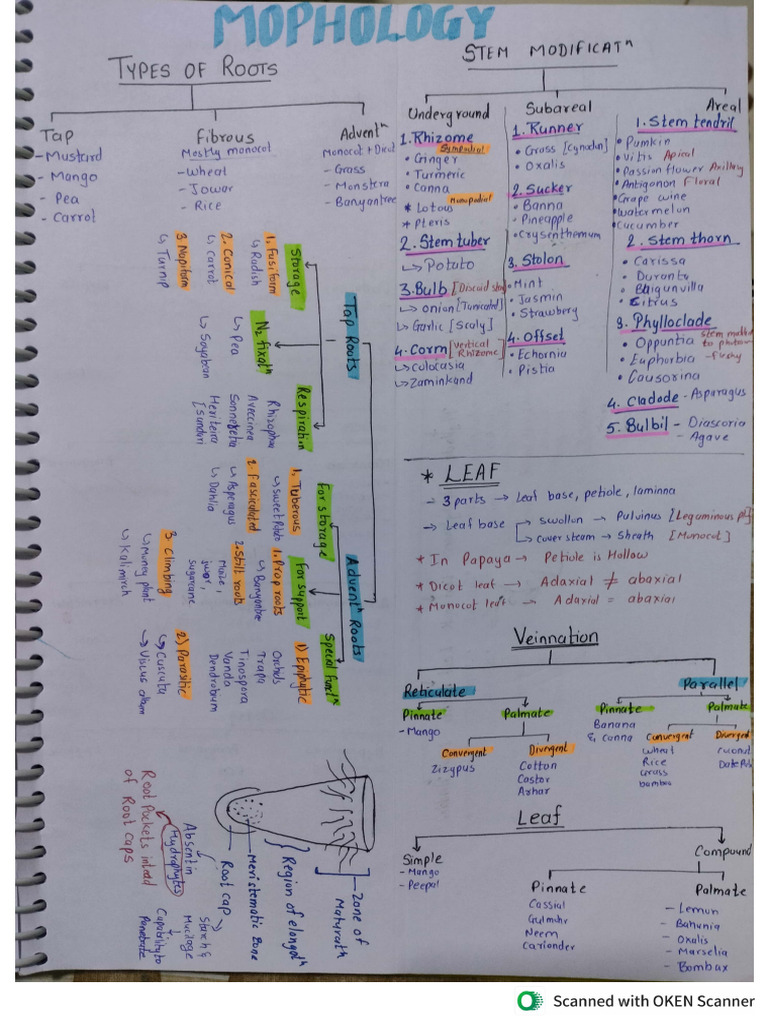 MOPHOLOGY
TYPES OF ROOTS
Tap
-Mustard
-Mango
-Pea
-Carrot
Fibrous
Mostly monocot
-Wheat
-Jowar
-Rice
Adventⁿ
Monocot + Dicot
-Grass
-Monstera
-Banyantree
Tap Roots
Storage
1. Fusiform
↳ Radish
2. Conical
↳ Carrot
3 Napiform
↳ Turnip
N₂ fixatⁿ
↳ Pea
↳ Soyabean
Respiration
Rhizophora
Aveccinea
Sonneretia
Heriteira
[Sunduri
Adventⁿ Roots
For storage
1. Tuberous
↳ Sweet Potato
2. Fasciculated
↳ Asperagus
↳ Dahlia
For support
1. Prop roots
↳ Banyantree
2. Stilt roots
Maize,
Jwor,
Sugarcane
3. Climbing
↳ Money plant
↳ Kalimirch
Special functⁿ
1) Epiphytic
Orchids
Trapa
Tinospora
Vanda
Dendrobum
2) Parasitic
↳ Cuscuta
↳ Viscus album
Zone of
Maturatⁿ
Region of elongatⁿ
Meristematic Zone
Root cap
Starch &
Mucilage
Capability to
Penetrate
Absent in
Hydrophytes
Root Pockets intead
of Root caps
STEM MODIFICATⁿ
Underground
1. Rhizome
Sympodial
• Ginger
• Turmeric
• Canna
Monopodial
* Lotous
* Pteris
2. Stem tuber
↳ Potato
3. Bulb [Discoid stem
↳ onion [Tunicated]
↳ Garlic [Scaly]
4. Corm [Vertical Rhizome]
↳ Colocasia
↳ Zaminkand
Subareal
1. Runner
• Grass [cynodon]
• Oxalis
2. Sucker
• Banna
• Pineapple
• Crysenthemum
3. Stolon
• Mint
• Jasmin
• Strawbery
4. Offset
• Echornia
• Pistia
Areal
1. Stem tendril
• Pumkin
• Vitis Apical
• Passion flower Axillary
• Antigonon Floral
• Grape wine
• Watermelun
• Cucumber
2. Stem thorn
• Carissa
• Duranta
• Baigunvilla
• Citrus
3. Phylloclade
• Oppuntia
• Euphorbia - fleshy
• Causorina
4. Cladode - Asparagus
5. Bulbil - Diascoria
- Agave
* LEAF
- 3 parts → Leaf base, petiole, laminna
→ Leaf base → Swollon → Pulvinus [Leguminous pl]
↳ cover steam → Sheath [Monocot]
* In Papaya → Petiole is Hollow
* Dicot leaf → Adaxial ≠ abaxial
* Monocot leaf → Adaxial = abaxial
Veinnation
Reticulate
Pinnate
- Mango
Palmate
Convergent
Zizypus
Divergent
Cotton
Castor
Arhar
Parallel
Pinnate
Banana
& Canna
Palmate
Convergent
Wheat
Rice
Grass
bamboo
Divergent
Cuconut
Leaf
Simple
- Mango
- Peepal
Compound
Pinnate
Cassial
Gulmohr
Neem
Cariander
Palmate
- Lemun
- Bahunia
- Oxalis
- Marselia
- Bombax
Scanned with OKEN Scanner